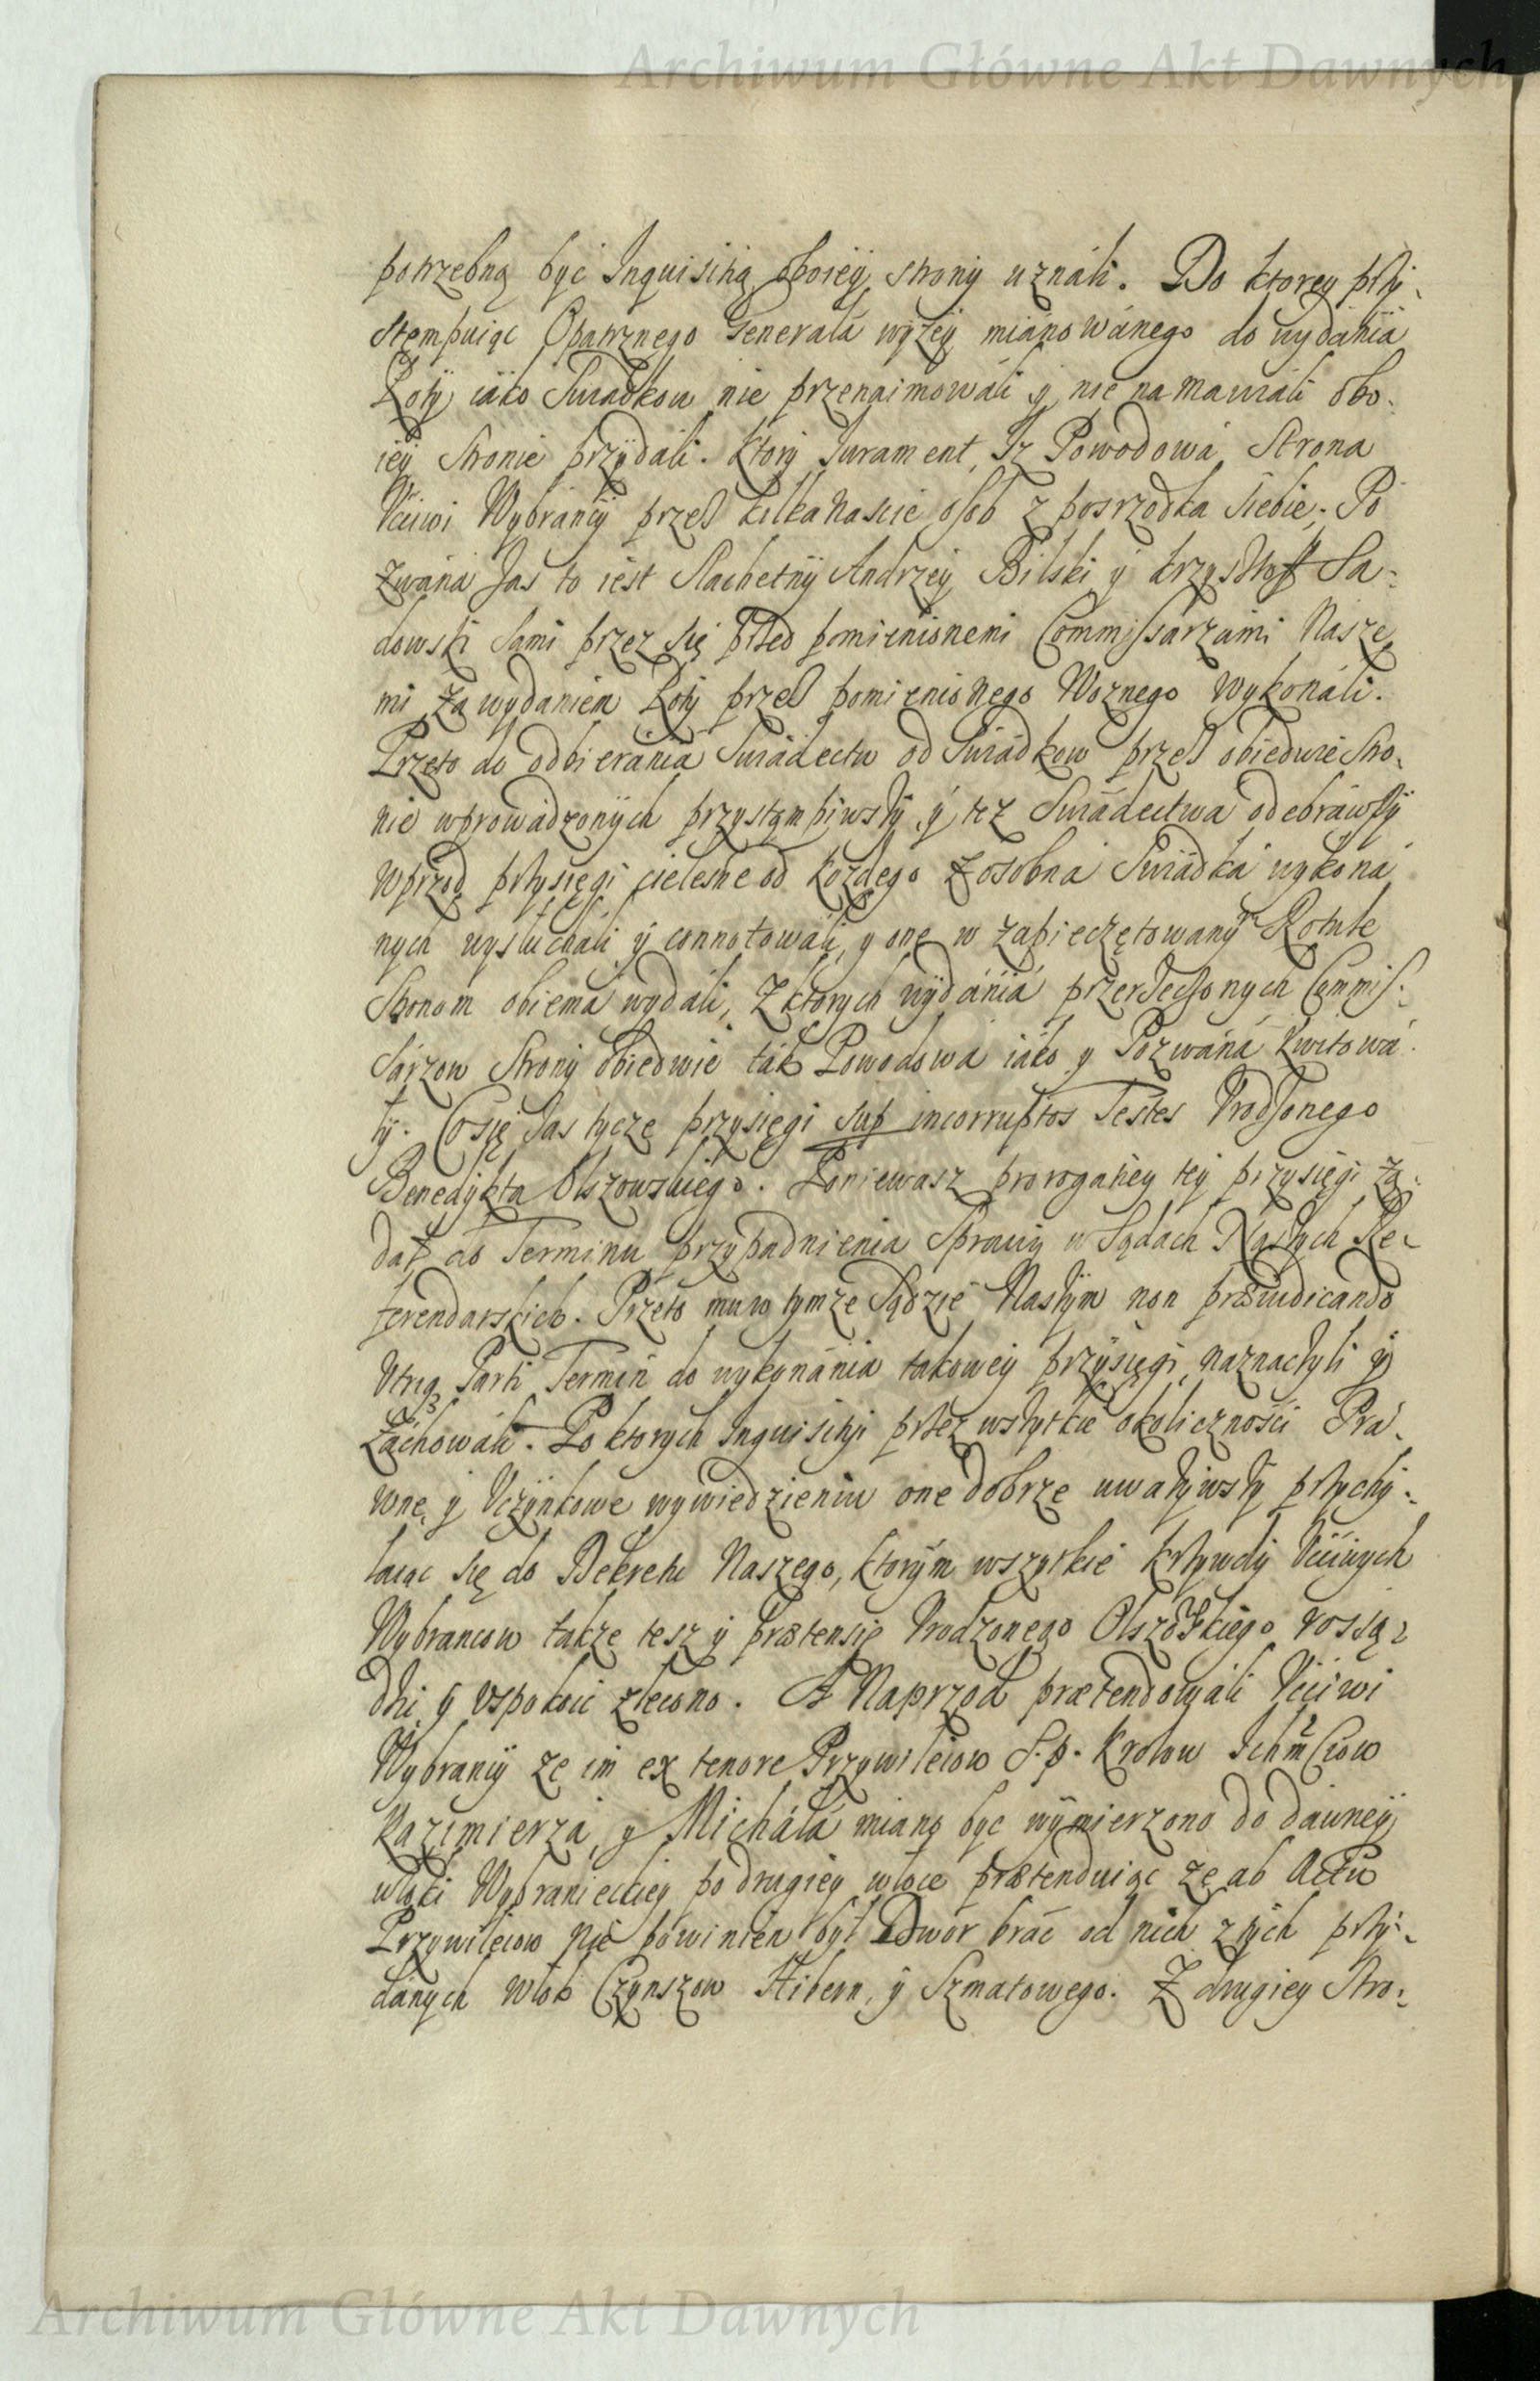 Archiwum Główne Akt Dawnych
potrzebną być Inquisitią oboiey strony uználi. Do ktorey przy-
stempuiąc Opatrznego Generałá wyżey miánowánego do wydánia
Roty iáko Swiadkow nie przenaimowáli y nie namawiáli obo-
iey Stronie przydáli. Ktory Jurament, Iż Powodowá Strona
Vcciwi Wybráncy przez kilkanascie osob z posrzodka siebie, Po
zwána zas to iest Slachetny Andrzey Bilski y Krzysztoff Sa-
dowski sami przez się przed pomienionemi Commissarzámi Nasze
mi za wydaniem Roty przez pomienionego Woznego wykonáli.
Przeto do odbieránia Swiádectw od Swiádkow przez obiedwie Stro-
nie wprowádzonych przystąmpiwszy, y też Swiádectwa odebráwszy
wprzod przysięgi cielesne od kożdego z osobná Swiádká wykoná
nych wysłucháli y connotowáli, y one w zapieczętowany Rotule
Stronom obiema wydáli, Z ktorych wydániá przerzeczonych Commis-
sárzow Strony obiedwie ták Powodowa iáko y Pozwáná kwitowá
ły. Co się zas tycze przysięgi sup incorruptos Testes Vrodzonego
Benedykta Olszowskiego. Poniewasz prorogatiey tey przysięgi żą-
dał do Terminu przypadnienia Sprawy w Sądach Naszych Re-
ferendarskich. Przeto mu w tymże Sądzie Naszym non præiudicando
Vtriq3 Parti Termin do wykonánia takowey przysięgi naznaczyli y
záchowáli. Po ktorych Inquisityi przez wszytkie okoliczności Prá-
wne, y Vczynkowe wywiedzieniu one dobrze uważywszy przychy-
laiąc się do Dekretu Naszego, ktorym wszytkie krzywdy Vcciwych
Wybrancow także tesz y prætensię Vrodzonego Olszowskiego rossą-
dzić y vspokoić zlecono. A Naprzod prætendowáli Vcciwi
Wybrancy że im ex tenore Przywileiow S. p. Krolow Ichmciow
Kazimierzá, y Micháłá miano być wymierzono do dawney
włoki Wybranieckiey po drugiey włoce prætenduiąc że ab Actu
Przywileiow nie powinien był Dwor bráć od nich z tych przy-
dánych włok Czynszow Hibern, y Szmatowego. Z drugiey Stro-
Archiwum Główne Akt Dawnych